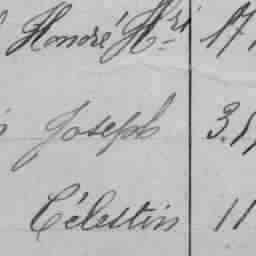 Honoré Hri 17
Joseph 3.
Célestin 11